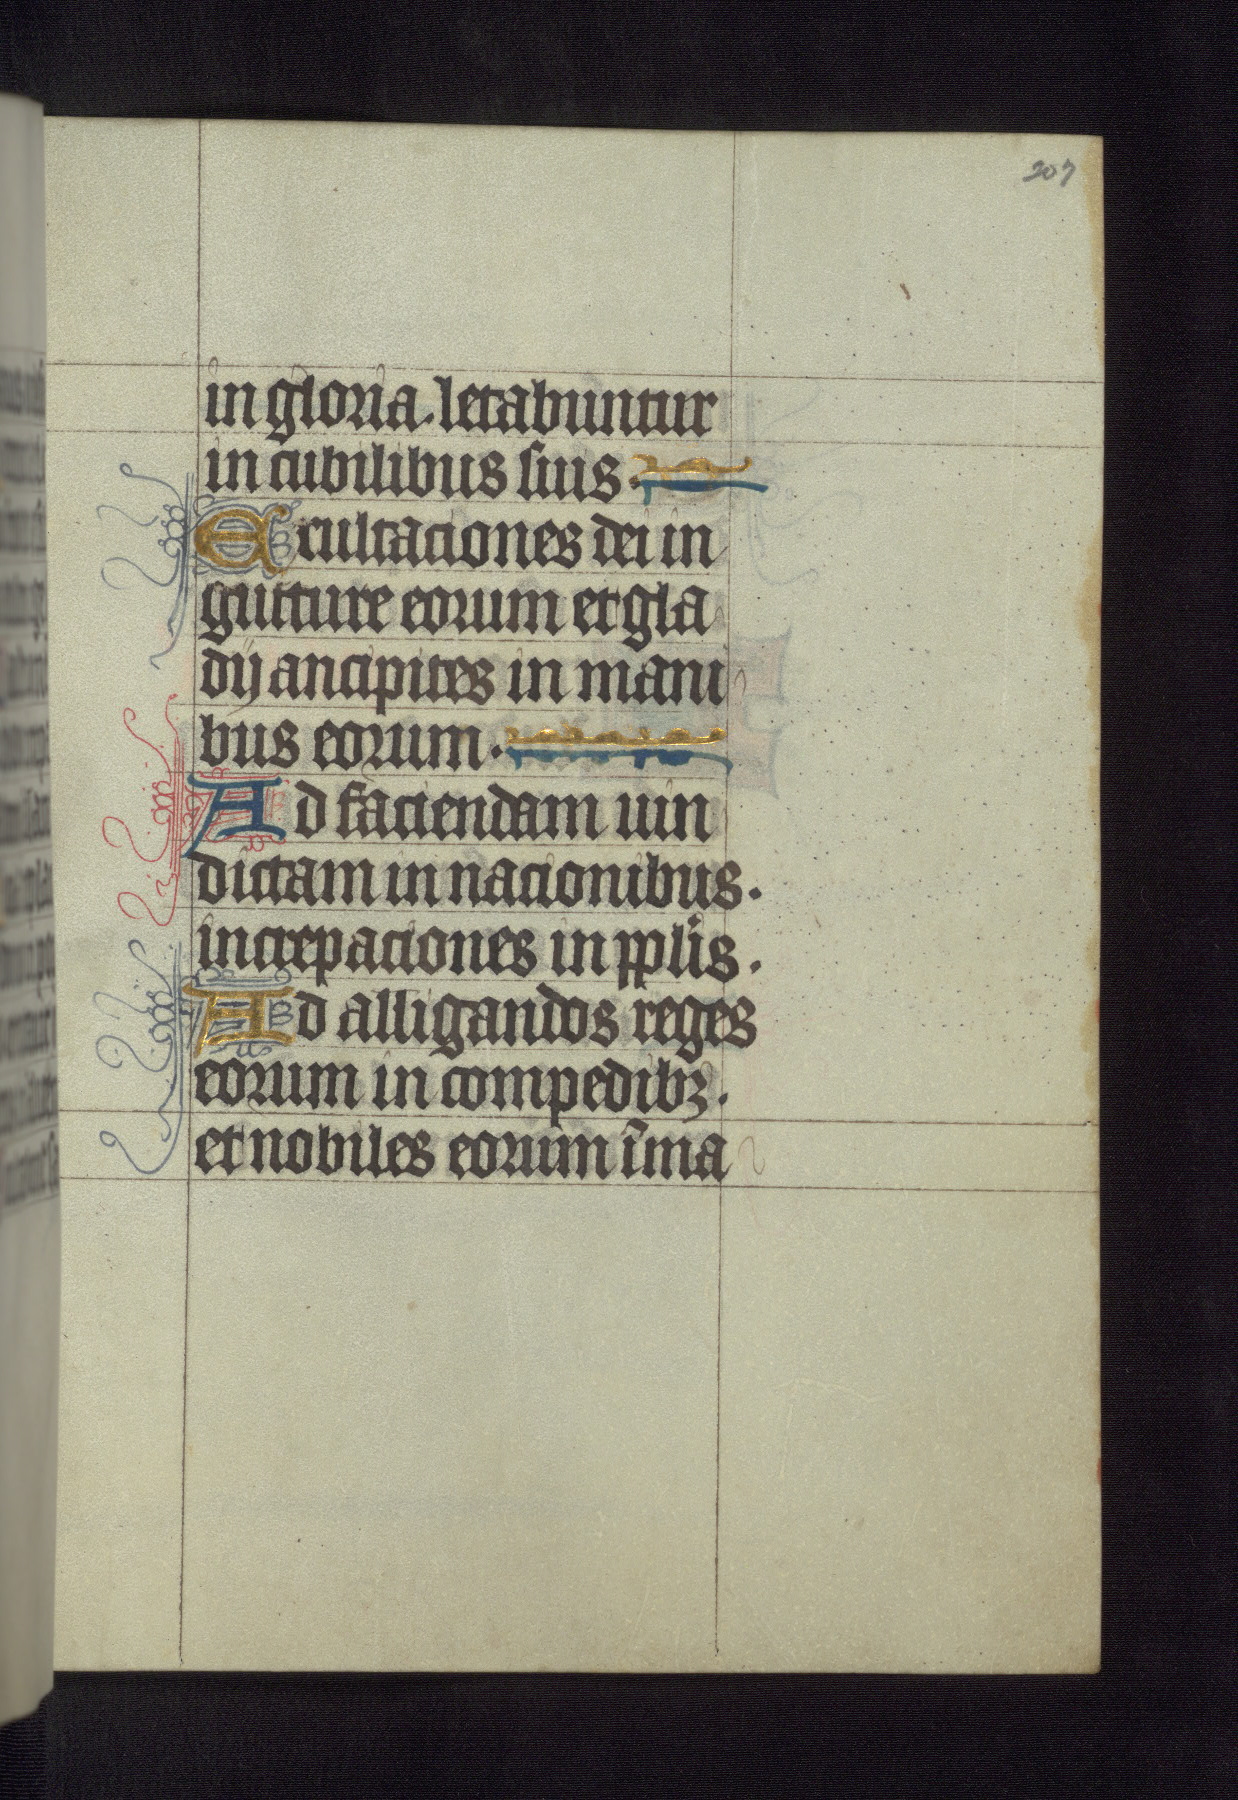 207
in gloria. letabuntur
in cubilibus suis.
Exultaciones dei in
gutture eorum et gla
dij ancipites in mani
bus eorum.
Ad faciendam uin
dictam in nacionibus.
increpaciones in pplis.
Ad alligandos reges
eorum in compedibꝫ.
et nobiles eorum ī ma